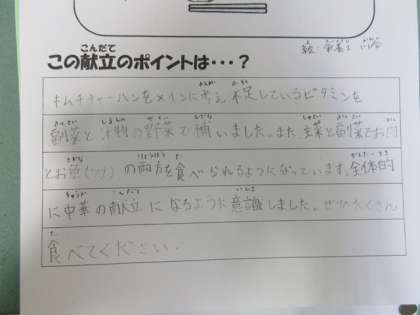 この献立のポイントは・・・?
キムチチャーハンをメインに考え不足しているビタミンを
副菜と汁物の野菜で補いました。また、主菜と副菜でお肉
とお魚(ツナ)の両方を食べられるようになっています。全体的
に中華の献立になるように意識しました。ぜひたくさん
食べてください。